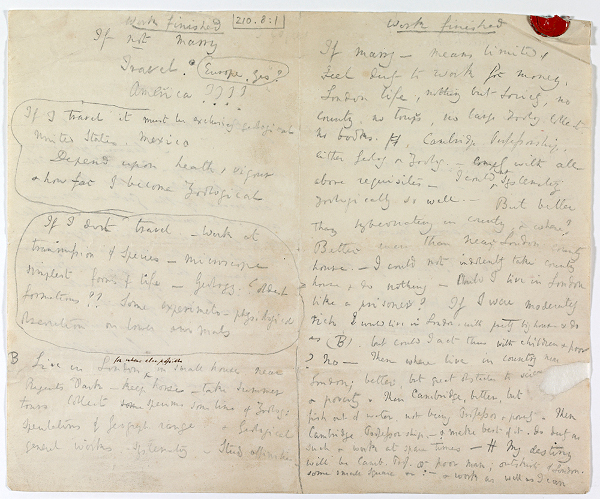 Work finished
210.8:1
If not marry
Travel. Europe, Yes?
America ????
If I travel it must be exclusively geological
United States, Mexico
Depend upon health, vigour
& how far I become Zoological
If I dont travel — Work at
transmission of Species — Microscope
simplest forms of life — Geology. Oldest
formations?? Some experiments — physiological
observation on lower animals
B Live in London for where else possible in small house, near
Regents Park — keep horse — take Summer
tours Collect specimens some line of Zoolog:
Speculations of Geograph range & Geological
general works — Systematiz — Study affinities.
Work finished
If marry — means limited,
Feel duty to work for money.
London life, nothing but Society, no
country, no tours, no large Zoolog. Collect.
no books. Cambridge Professorship,
either Geolog. or Zoolog. — comply with all
above requisites — I couldn't systematiz
zoologically so well — But better
than hybernating in country & where?
Better even than near London country
house. — I could not indolently take country
house & do nothing — Could I live in London
like a prisoner? If I were moderately
rich I would live in London, with pretty big house & do
as (B). but could I act thus with children & poor
? No — Then where live in country near
London; better, but great obstacles to science
& poverty. Then Cambridge, better, but
fish out of water, not being Professor & poverty. Then
Cambridge Professorship, — & make best of it, do duty as
such & work at spare times — My destiny
will be Camb. Prof. or poor man; outskirts of London.
some small Square &c: — & work as well as I can